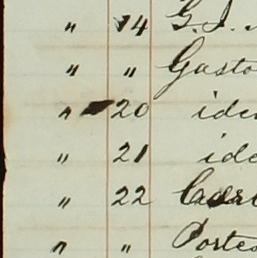 " 14 G. I.
" " Gasto
" 20 ide
" 21 ide
" 22
" " Porte